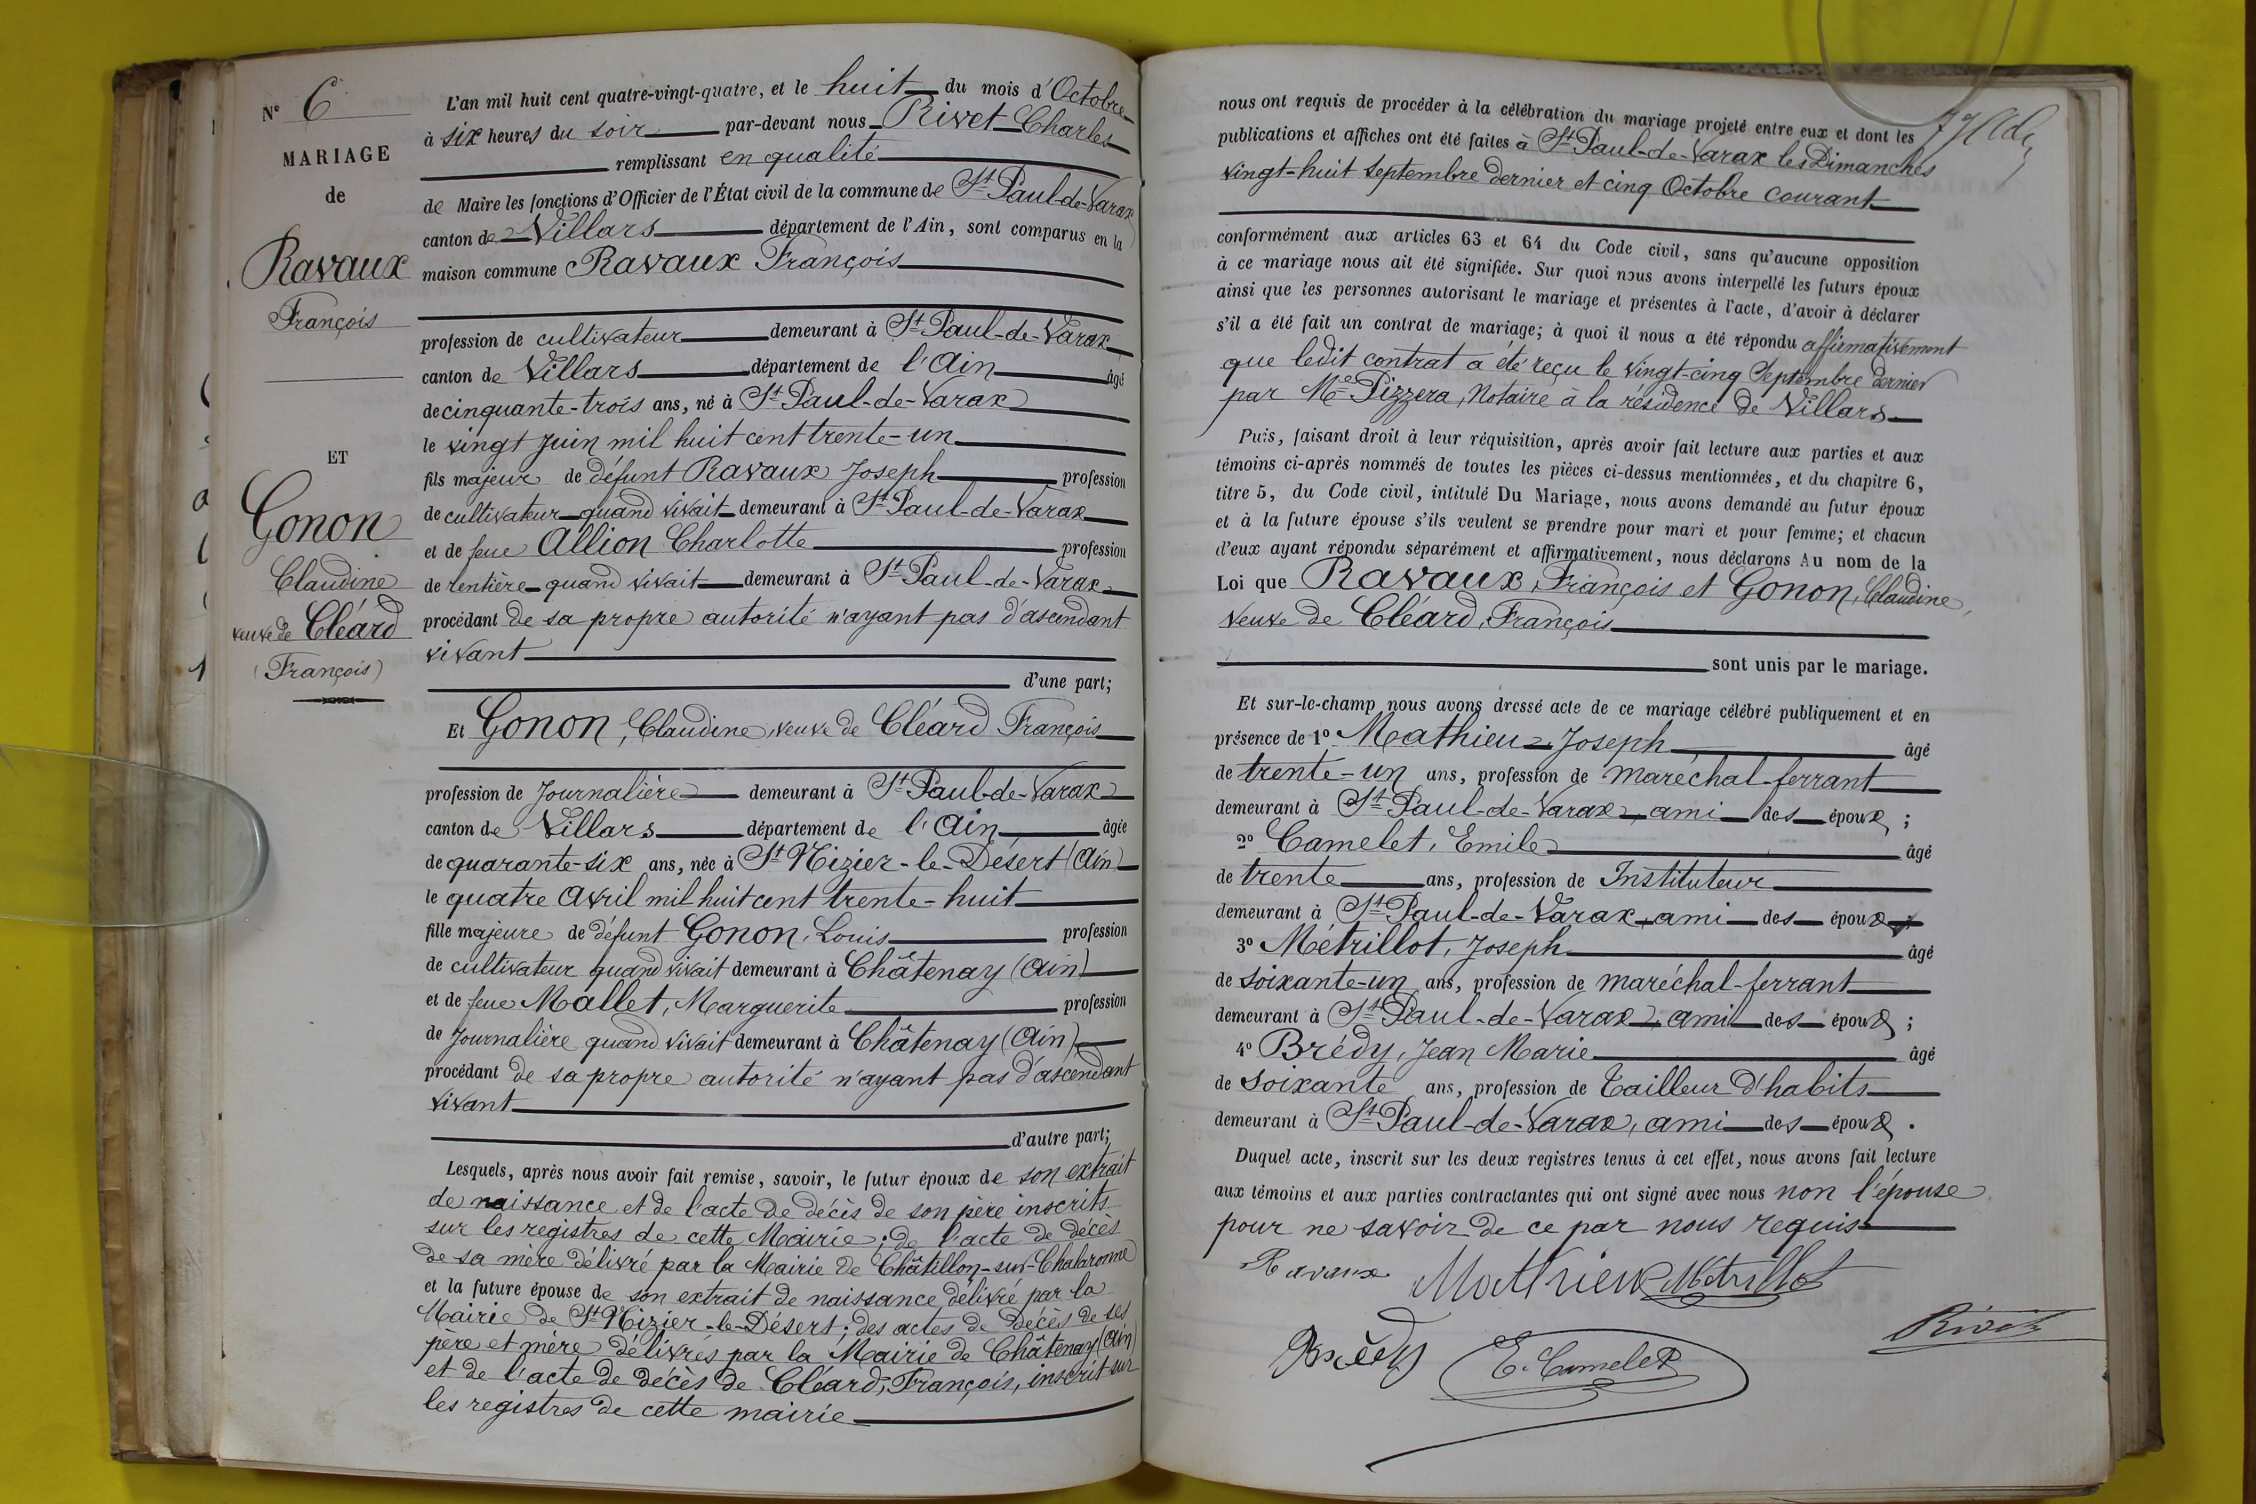 N° 6
MARIAGE
de
Ravaux
François
ET
Gonon
Claudine
veuve de Cléard
(François)
L'an mil huit cent quatre-vingt-quatre, et le huit du mois d'Octobre
à six heures du soir par-devant nous Rivet Charles
remplissant en qualité
de Maire les fonctions d'Officier de l'État civil de la commune de St Paul-de-Varax
canton de Villars département de l'Ain, sont comparus en la
maison commune Ravaux François
profession de cultivateur demeurant à St Paul-de-Varax
canton de Villars département de l'Ain âgé
de cinquante-trois ans, né à St Paul-de-Varax
le vingt Juin mil huit cent trente-un
fils majeur de défunt Ravaux Joseph profession
de cultivateur quand vivait demeurant à St Paul-de-Varax
et de feue Allion Charlotte profession
de rentière quand vivait demeurant à St Paul-de-Varax
procédant de sa propre autorité n'ayant pas d'ascendant
vivant
d'une part;
Et Gonon, Claudine, veuve de Cléard François
profession de Journalière demeurant à St Paul-de-Varax
canton de Villars département de l'Ain âgée
de quarante-six ans, née à St Nizier-le-Désert (Ain)
le quatre Avril mil huit cent trente-huit
fille majeure de défunt Gonon, Louis profession
de cultivateur quand vivait demeurant à Châtenay (Ain)
et de feue Mallet, Marguerite profession
de Journalière quand vivait demeurant à Châtenay (Ain)
procédant de sa propre autorité n'ayant pas d'ascendant
vivant
d'autre part;
Lesquels, après nous avoir fait remise, savoir, le futur époux de son extrait
de naissance et de l'acte de décès de son père inscrits
sur les registres de cette Mairie; de l'acte de décès
de sa mère délivré par la Mairie de Châtillon-sur-Chalaronne
et la future épouse de son extrait de naissance délivré par la
Mairie de St Nizier-le-Désert; des actes de décès de ses
père et mère délivrés par la Mairie de Châtenay (Ain)
et de l'acte de décès de Cléard, François, inscrit sur
les registres de cette mairie
nous ont requis de procéder à la célébration du mariage projeté entre eux et dont les
publications et affiches ont été faites à St Paul-de-Varax les Dimanches
vingt-huit Septembre dernier et cinq Octobre courant
conformément aux articles 63 et 64 du Code civil, sans qu'aucune opposition
à ce mariage nous ait été signifiée. Sur quoi nous avons interpellé les futurs époux
ainsi que les personnes autorisant le mariage et présentes à l'acte, d'avoir à déclarer
s'il a été fait un contrat de mariage; à quoi il nous a été répondu affirmativement
que ledit contrat a été reçu le vingt-cinq Septembre dernier
par Me Pizzera, Notaire à la résidence de Villars
Puis, faisant droit à leur réquisition, après avoir fait lecture aux parties et aux
témoins ci-après nommés de toutes les pièces ci-dessus mentionnées, et du chapitre 6,
titre 5, du Code civil, intitulé Du Mariage, nous avons demandé au futur époux
et à la future épouse s'ils veulent se prendre pour mari et pour femme; et chacun
d'eux ayant répondu séparément et affirmativement, nous déclarons Au nom de la
Loi que Ravaux, François et Gonon, Claudine,
veuve de Cléard, François
sont unis par le mariage.
Et sur-le-champ nous avons dressé acte de ce mariage célébré publiquement et en
présence de 1° Mathieu, Joseph âgé
de trente-un ans, profession de maréchal-ferrant
demeurant à St Paul-de-Varax, ami des époux;
2° Camelet, Emile âgé
de trente ans, profession de Instituteur
demeurant à St Paul-de-Varax, ami des époux;
3° Métrillot, Joseph âgé
de soixante-un ans, profession de maréchal-ferrant
demeurant à St Paul-de-Varax, ami des époux;
4° Brédy, Jean Marie âgé
de soixante ans, profession de tailleur d'habits
demeurant à St Paul-de-Varax, ami des époux.
Duquel acte, inscrit sur les deux registres tenus à cet effet, nous avons fait lecture
aux témoins et aux parties contractantes qui ont signé avec nous non l'épouse
pour ne savoir de ce par nous requis
Ravaux Mathieu Métrillot
Rivet
Brédy E. Camelet